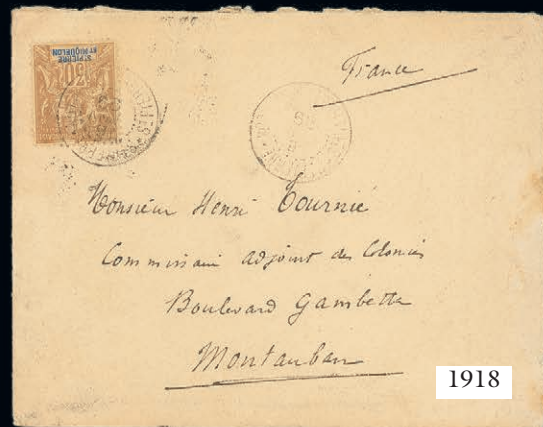 ST PIERRE
ET MIQUELON
France
Monsieur Henri Tournié
Commissaire adjoint des Colonies
Boulevard Gambetta
Montauban
1918